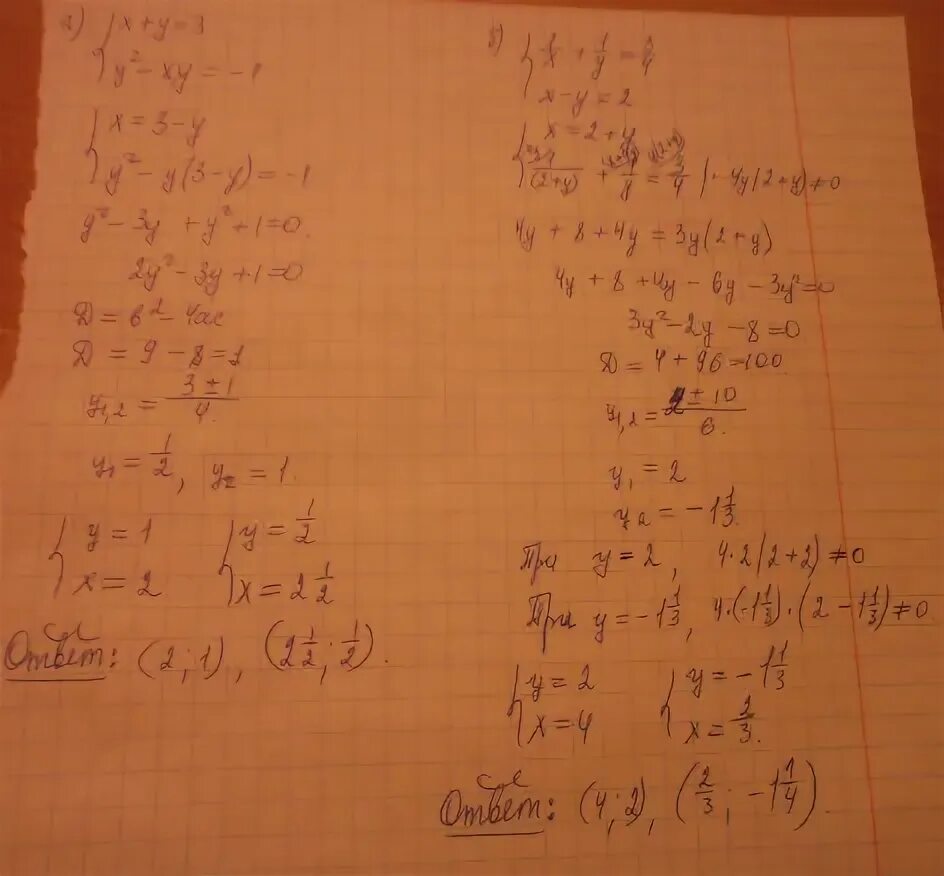 2) { x + y = 3
y² - xy = -1
{ x = 3 - y
y² - y(3 - y) = -1
y² - 3y + y² + 1 = 0
2y² - 3y + 1 = 0
D = b² - 4ac
D = 9 - 8 = 1
y₁,₂ = (3 ± 1)/4
y₁ = 1/2, y₂ = 1.
{ y = 1
x = 2
{ y = 1/2
x = 2 1/2
Ответ: (2; 1), (2 1/2; 1/2).
{ 1/x + 1/y = 3/4
x - y = 2
{ x = 2 + y
1/(2+y) + 1/y = 3/4 | · 4y(2+y) ≠ 0
4y + 8 + 4y = 3y(2 + y)
4y + 8 + 4y - 6y - 3y² = 0
3y² - 2y - 8 = 0
D = 4 + 96 = 100.
y₁,₂ = (2 ± 10)/6.
y₁ = 2
y₂ = -1 1/3.
При y = 2, 4·2(2+2) ≠ 0
При y = -1 1/3, 4·(-1 1/3)·(2 - 1 1/3) ≠ 0.
{ y = 2
x = 4
{ y = -1 1/3
x = 2/3.
Ответ: (4; 2), (2/3; -1 1/4).